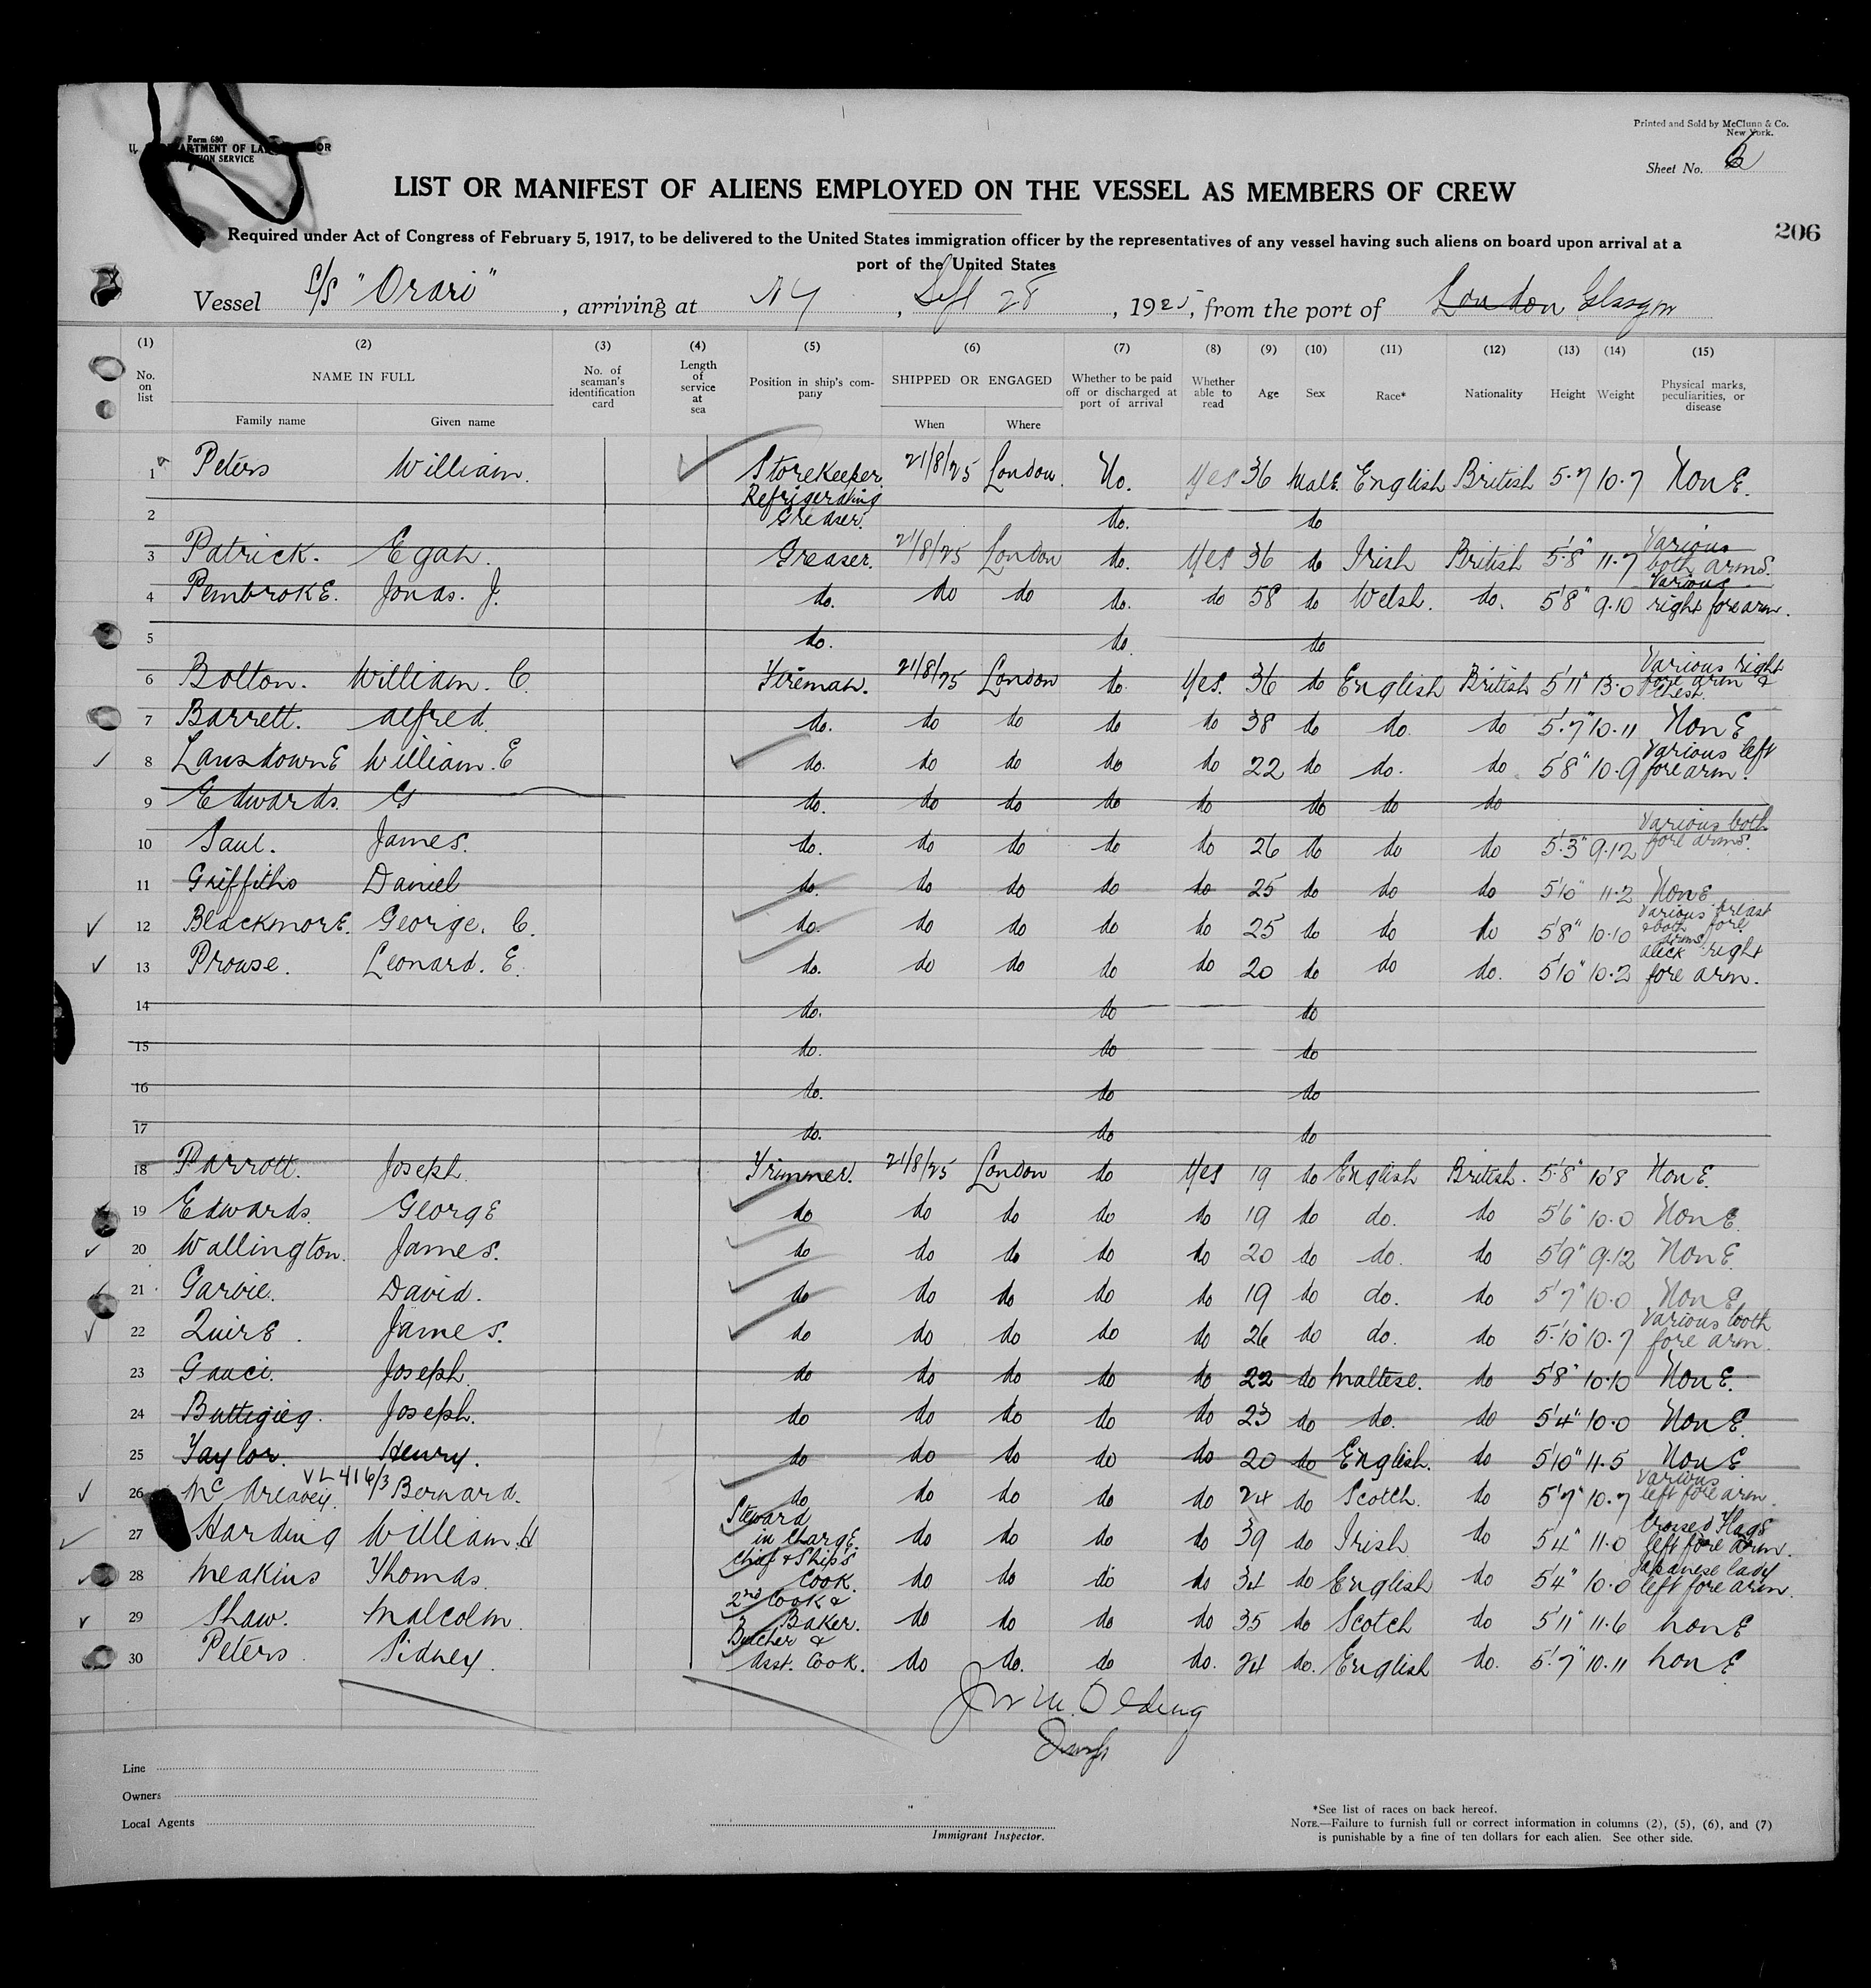 Form 680
Printed and Sold by McClunn & Co.
New York.
Sheet No.
LIST OR MANIFEST OF ALIENS EMPLOYED ON THE VESSEL AS MEMBERS OF CREW
206
Required under Act of Congress of February 5, 1917, to be delivered to the United States immigration officer by the representatives of any vessel having such aliens on board upon arrival at a
port of the United States
Vessel S/S "Orari", arriving at NY, Sept 28, 1925, from the port of London Glasgow
(1) (2) (3) (4) (5) (6) (7) (8) (9) (10) (11) (12) (13) (14) (15)
No. on list NAME IN FULL No. of seaman's identification card Length of service at sea Position in ship's company SHIPPED OR ENGAGED Whether to be paid off or discharged at port of arrival Whether able to read Age Sex Race* Nationality Height Weight Physical marks, peculiarities, or disease
Family name Given name When Where
1 Peters William. Storekeeper. 21/8/25 London. No. Yes 36 Male. English British 5.7 10.7 None.
2 Refrigerating Greaser. do. do
3 Patrick. Egan. Greaser. 21/8/25 London do. Yes 36 do Irish British 5'8" 11.7 Various both arms.
4 Pembroke. Jonas. J. do. do do do. do 58 do Welsh. do. 5'8" 9.10 Various right fore arm.
5 do. do. do
6 Bolton. William. C. Fireman. 21/8/25 London do. Yes. 36 do English British 5'11" 13.0 Various right fore arm & chest.
7 Barrett. Alfred. do. do do do do 38 do do. do 5'.7" 10.11 None
8 Lansdowne William. E do. do do do do 22 do do. do 5'8" 10.9 Various left fore arm.
9 Edwards. G do. do do do do do do do
10 Saul. James. do. do do do do 26 do do do 5'.3" 9.12 Various both fore arms.
11 Griffiths Daniel do. do do do do 25 do do do 5'10" 11.2 None
12 Blackmore. George. C. do. do do do do 25 do do do 5'8" 10.10 Various breast & both fore arms.
13 Prowse. Leonard. E. do. do do do do 20 do do do. 5'10" 10.2 right fore arm.
14 do. do do
15 do. do do
16 do. do do
17 do. do do
18 Parrott. Joseph. Trimmer. 21/8/25 London do Yes 19 do English British. 5'8" 10'8 None.
19 Edwards. George do do do do do 19 do do. do 5'6" 10.0 None.
20 Wallington. James. do do do do do 20 do do. do 5'9" 9.12 None.
21 Garvie. David. do do do do do 19 do do. do 5'7" 10.0 None
22 Quire. James. do do do do do 26 do do. do 5'.10" 10.7 Various both fore arm.
23 Gauci. Joseph. do do do do do 22 do Maltese. do 5'8" 10.10 None.
24 Buttigieg. Joseph. do do do do do 23 do do. do 5'4" 10.0 None.
25 Taylor. Henry. do do do do do 20 do English. do 5'10" 11.5 None
VL 416/3
26 Mc Areavey. Bernard. do do do do do 24 do Scotch. do 5'7" 10.7 Various left fore arm.
27 Harding William. H Steward in charge. do do do do 39 do Irish do 5'4" 11.0 Crossed Flags left fore arm.
28 Meakins Thomas. Chief & Ships Cook. do do do do 34 do English do 5'4" 10.0 Japanese lady left fore arm.
29 Shaw. Malcolm. 2nd Cook & Baker. do do do do 35 do Scotch do 5'11" 11.6 None
30 Peters. Sidney. Butcher & Asst. Cook. do do. do do. 24 do. English do. 5'.7" 10.11 None
Line
Owners
Local Agents
Immigrant Inspector.
*See list of races on back hereof.
NOTE.—Failure to furnish full or correct information in columns (2), (5), (6), and (7)
is punishable by a fine of ten dollars for each alien. See other side.